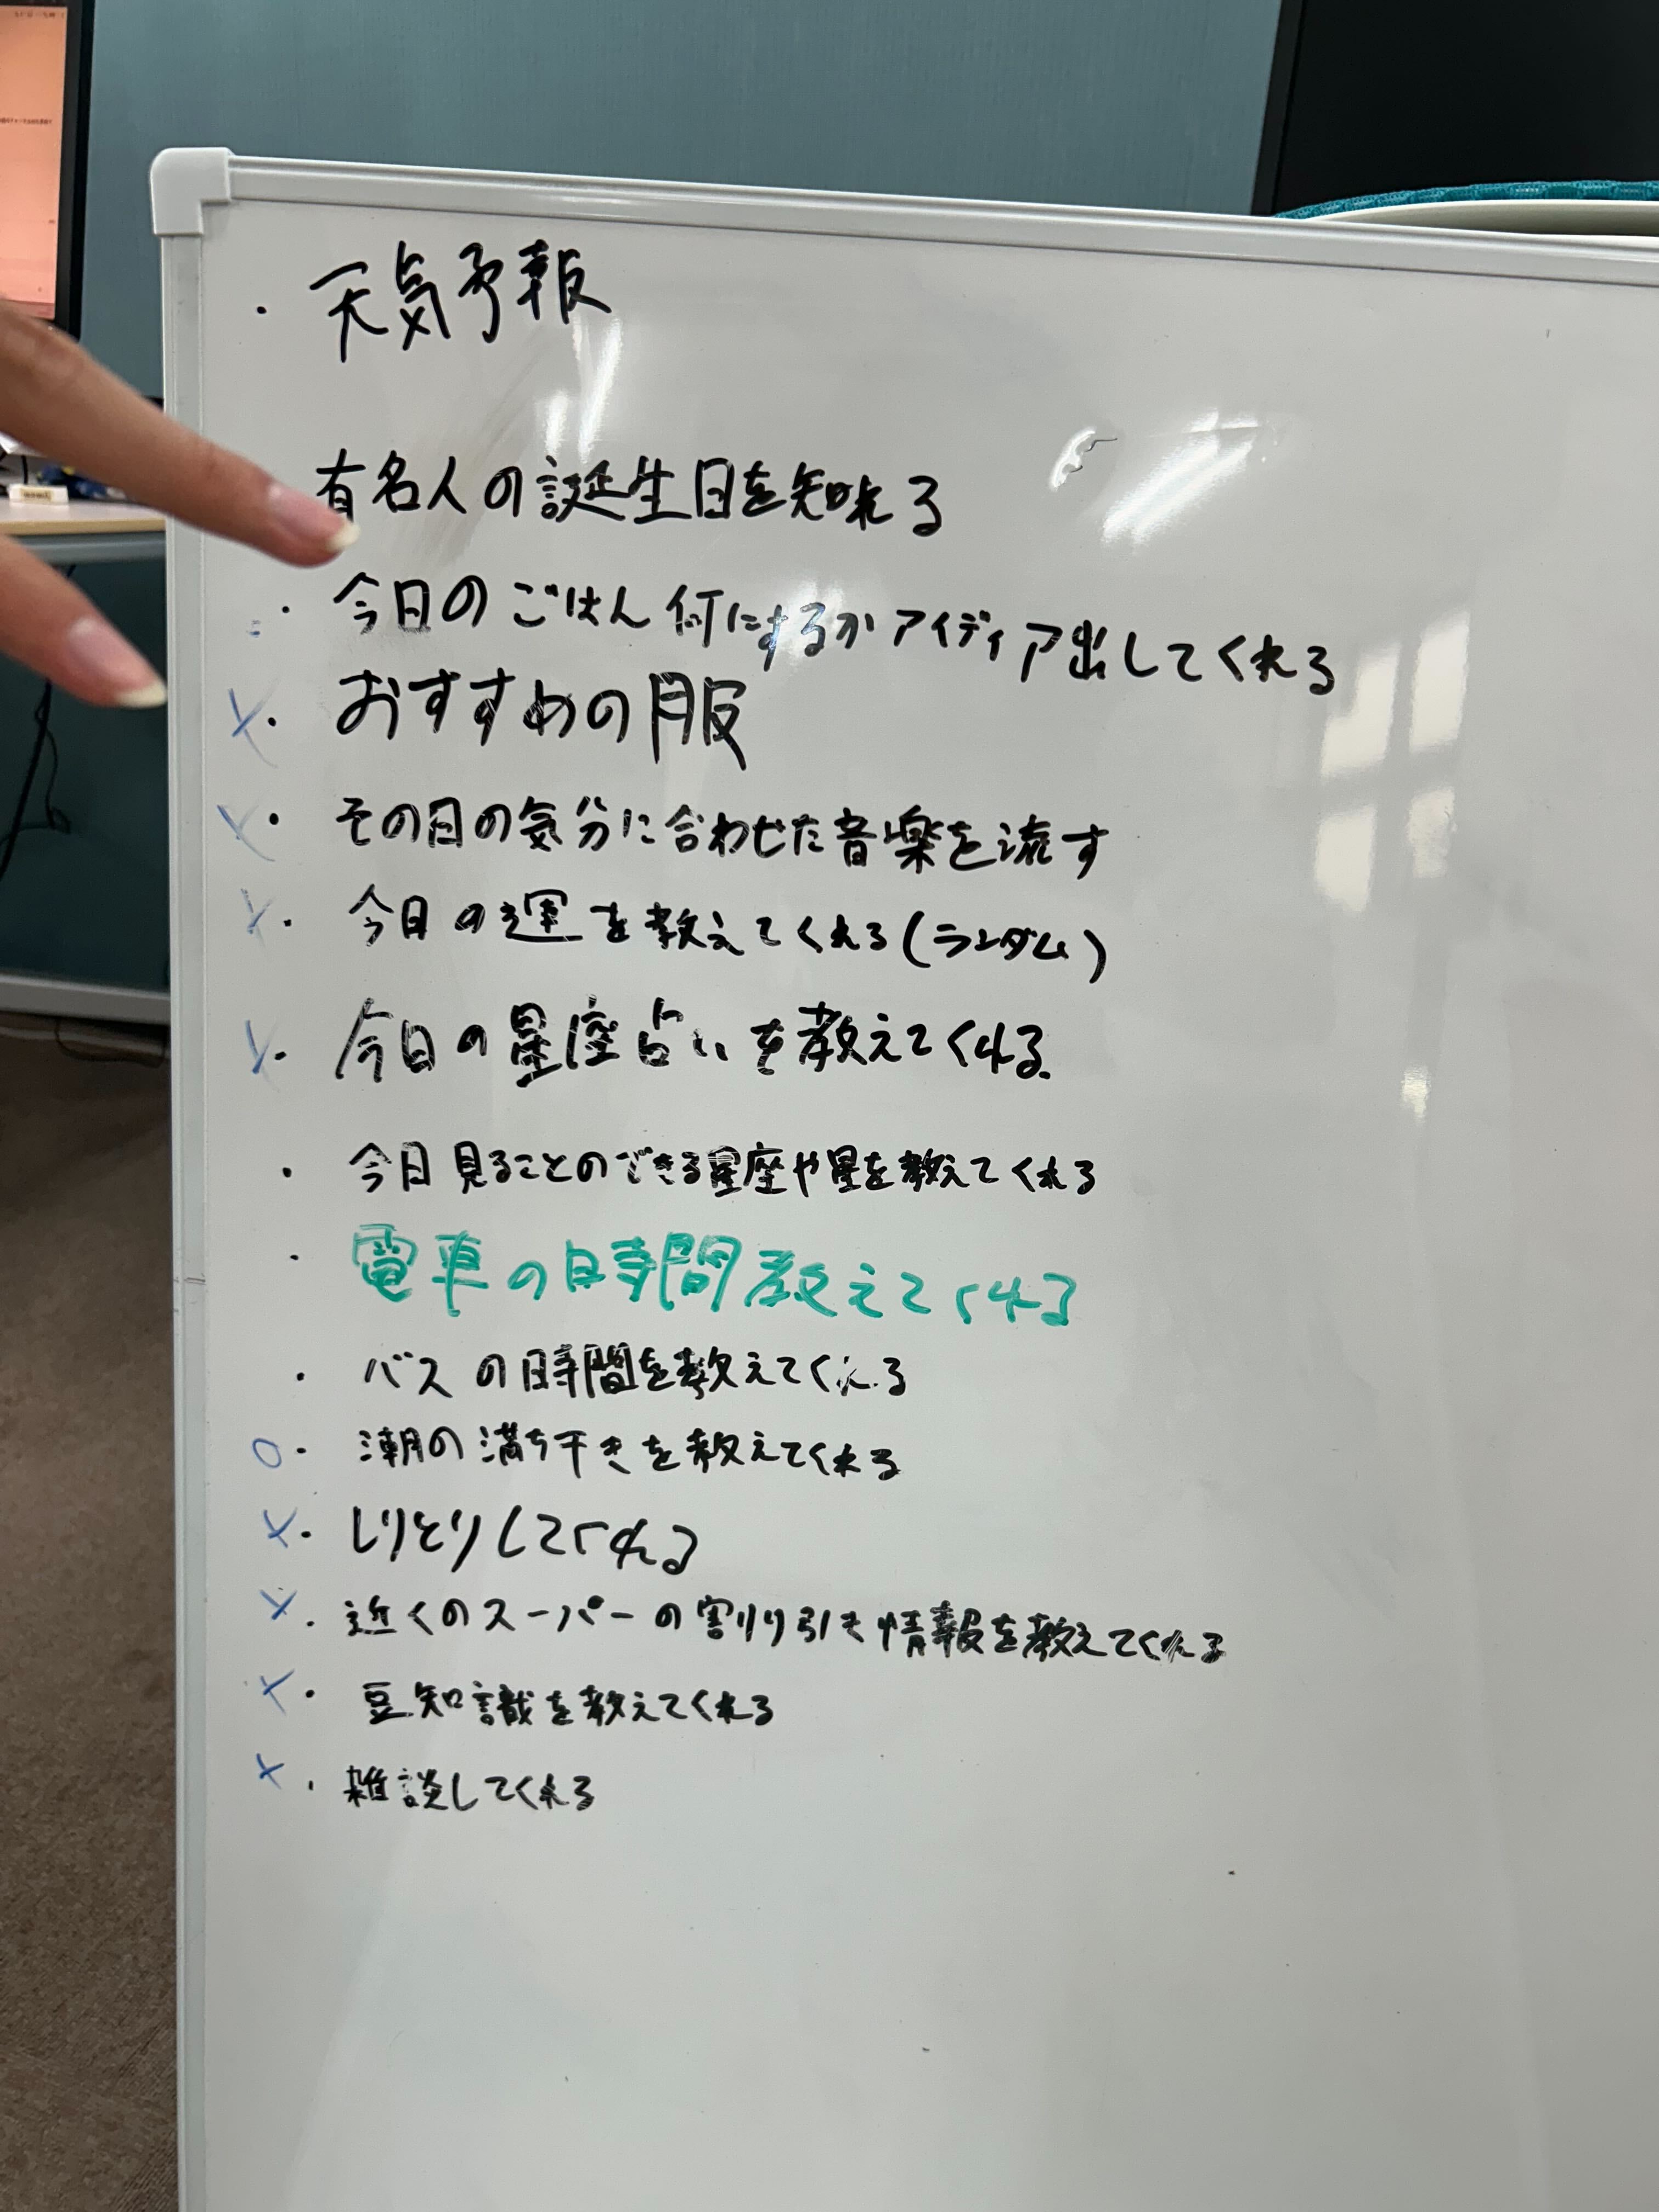 ・天気予報
有名人の誕生日を知れる
・今日のごはん何にするかアイディア出してくれる
×・おすすめの服
×・その日の気分に合わせた音楽を流す
×・今日の運を教えてくれる(ランダム)
×・今日の星座占いを教えてくれる
・今日見ることのできる星座や星を教えてくれる
・電車の時間教えてくれる
・バスの時間を教えてくれる
○・潮の満ち干きを教えてくれる
×・しりとりしてくれる
×・近くのスーパーの割り引き情報を教えてくれる
×・豆知識を教えてくれる
×・雑談してくれる